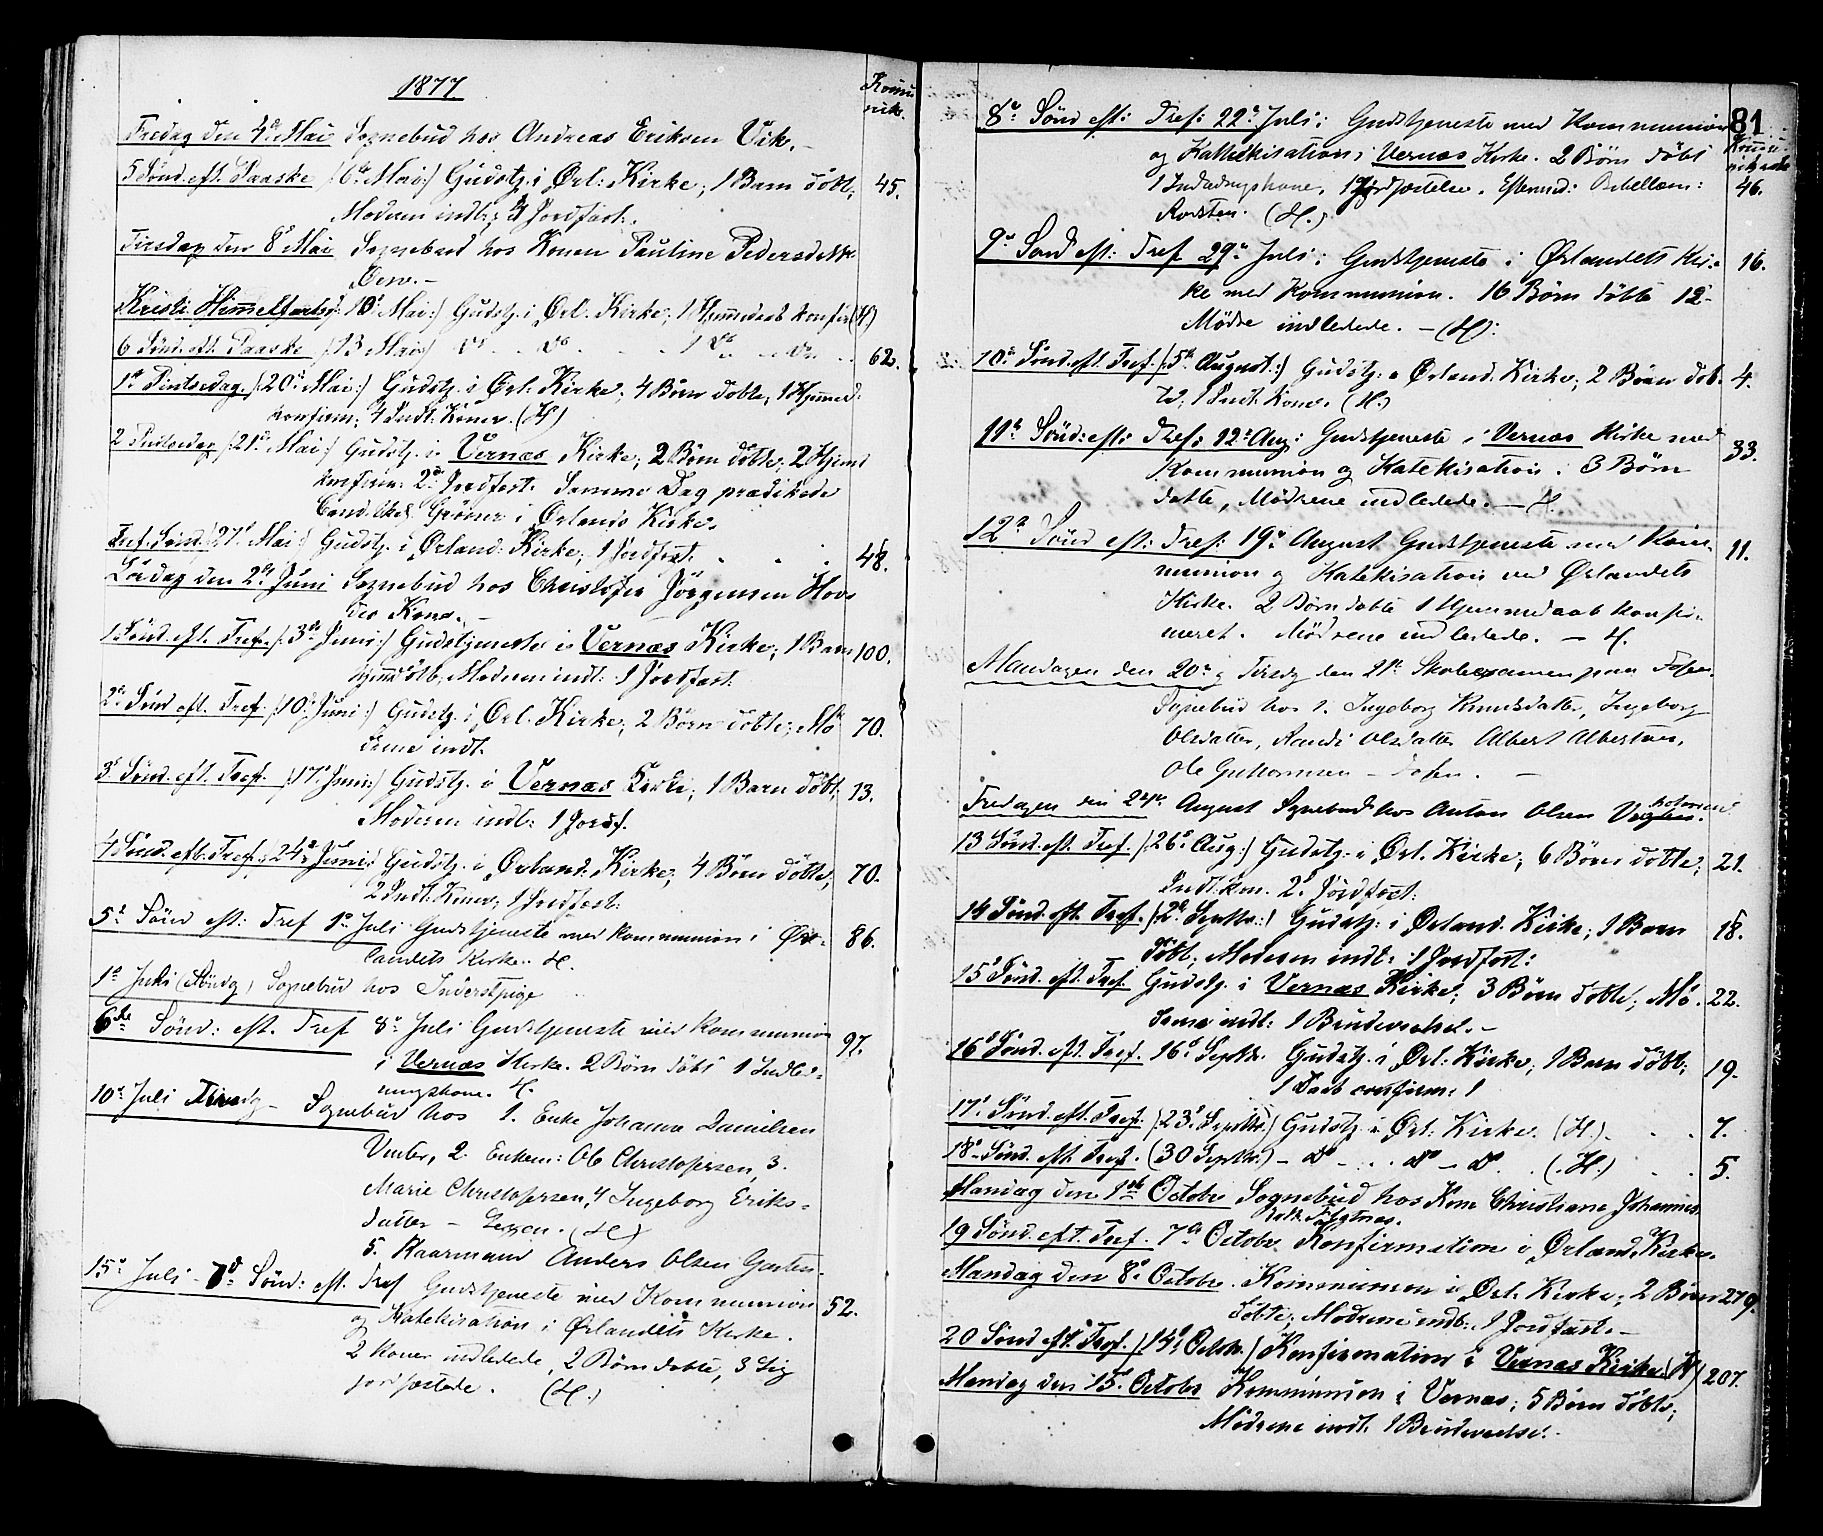 1877
Komu
nik.
Fredag den 4de Mai Sognebud hos Andreas Eriksen Vik. -
5 Sønd. eft. Paaske /: 6te Mai :/ Gudstj. i Ørl: Kirke; 1 Barn døbt; 45.
Moderen indl; 4 Jordfæst.
Tirsdag den 8de Mai Sognebud hos Konen Pauline Pedersdatt
Kristi Himmelfartsd: 10de Mai :/ Gudstj. i Ørl. Kirke; 1 Hjemmedøbt konfir (H)
6 Sønd. eft. Paaske /: 13 Mai :/ do - - do - - 1 do - - do 62.
1ste Pintsedag. /: 20de Mai :/ Gudstj. i Ørl. Kirke; 4 Børn døbte; 1 Hjemmed.
konfirm; 4 Indl: Koner. (H)
2 Pintsedag /: 21de Mai :/ Gudstj. i Vernæs Kirke; 2 Børn døbte; 2 Hjemd
konfirm: 2 Jordfæst. Samme Dag prædikede
Cand. theol. Grøner i Ørlands Kirke.
Tref. Sønd. /: 27de Mai :/ Gudstj. i Ørland. Kirke; 1 Jordfæst. 48.
Lørdag den 2den Juni Sognebud hos Christofer Jørgensen Hovs
des Kone. -
1 Sønd. eft. Tref. /: 3de Juni :/ Gudstjeneste i Vernæs Kirke; 1 Barn 100.
hjemdøb, Moderen indl: 1 Jordfæst.
2de Sønd eft. Tref. /: 10de Juni :/ Gudstj. i Ørl. Kirke; 2 Børn døbte; Mø 70.
drene indl.
3de Sønd. eft. Tref. /: 17de Juni :/ Gudstj. i Vernæs Kirke; 1 Barn døbt; 13.
Moderen indl: 1 Jordf.
4 Sønd. eft. Tref. /: 24de Juni :/ Gudstj. i Ørland. Kirke; 4 Børn døbte; 70.
2 Indl. Koner; 1 Jordfæst.
5te Sønd eft: Tref 1ste Juli Gudstjeneste med Kommunion i Ør- 86.
landets Kirke. H.
1ste Juli (Søndg) Sognebud hos Inderstpige
6te Sønd: eft. Tref 8de Juli Gudstjeneste med Kommunion 97.
i Vernæs Kirke. 2 Børn døbt 1 Indled-
ningskone. H.
10de Juli Tirsdg - Sognebud hos 1. Enke Johanna Danielsen
2. Enkem: Ole Christofersen, 3.
Marie Christofersen, 4 Ingeborg Eriks-
datter - (H)
5. Kaarmand Anders Olsen Garten.
15de Juli - 7de Sønd: eft. Tref Gudstjeneste med Kommunion 52.
og Katekisation i Ørlandets Kirke.
2 Koner indledede, 2 Børn døbte, 3 Lig
jordfæstede. (H.)
81
8de Sønd eft: Tref: 22de Juli: Gudstjeneste med Kommunion Kommu-
og Katekisation i Vernæs Kirke. 2 Børn døbt nikerede
1 Indledningskone, 1 Jordfæstelse. 46.
(H.)
9de Sønd eft: Tref 29de Juli: Gudstjeneste i Ørlandets Kir- 16.
ke med Kommunion. 16 Børn døbte 12
Mødre indledede. - (H):
10de Sønd. eft. Tref. /: 5te August :/ Gudstj. i Ørland. Kirke; 2 Børn døb 4.
te; 1 Indl: Kone. (H.)
11te Sønd: eft: Tref: 12te Aug: Gudstjeneste i Vernæs Kirke med 33.
Kommunion og Katekisation. 3 Børn
døbte, Mødrene indledede. - H.
12te Sønd eft: Tref: 19de August Gudstjeneste med Kom- 11.
munion og Katekisation ved Ørlandets
Kirke. 2 Børn døbte 1 Hjemmedaab konfir-
meret. Mødrene indledede. - H.
Mandagen den 20de og Tirsdg den 21de Skoleexamen paa
Sognebud hos 1. Ingeborg Knudsdatter, Ingeborg
Olsdatter, Randi Olsdatter Albert Albertsen,
Ole Guttormsen -
Fredagen den 24de August Sognebud hos Anton Olsen
13 Sønd. eft. Tref. /: 26de Aug :/ Gudstj. i Ørl. Kirke; 6 Børn døbte; 21.
Indl. Kon. 2 Jordfæst.
14 Sønd. eft. Tref. /: 2de Septbr. :/ Gudstj. i Ørland. Kirke; 1 Barn 18.
døbt; Moderen indl: 1 Jordfæst:
15de Sønd. eft. Tref. Gudstj. i Vernæs Kirke; 3 Børn døbte; Mø. 22.
drene indl: 1 Brudevielse. -
16de Sønd. eft. Tref. 16de Septbr. Gudstj. i Ørl: Kirke; 1 Barn døbt; 19.
1 Daab confirm: 1
17de Sønd. eft. Tref. /: 23de Septbr. :/ Gudstj. i Ørl: Kirke. (H.) 7.
18de Sønd. eft. Tref. (30 Septbr.) - do - - do - do (H.) 5.
Mandag den 1ste Octobr Sognebud hos Kone Christiane Johannes
datt.
19 Sønd. eft. Tref. 7de Octobr. Konfirmation i Ørland. Kirke.
Mandag den 8de Octobr. Kommunion i Ørl. Kirke; 2 Børn 279.
døbte; Mødrene indl: 1 Jordfæst. -
20 Sønd. eft. Tref. /: 14de Octobr. :/ Konfirmation i Vernæs Kirke. (H) 207.
Mandag den 15de Octobr Kommunion i Vernæs; 5 Børn døbte;
Mødrene indl. 1 Brudevielse. -